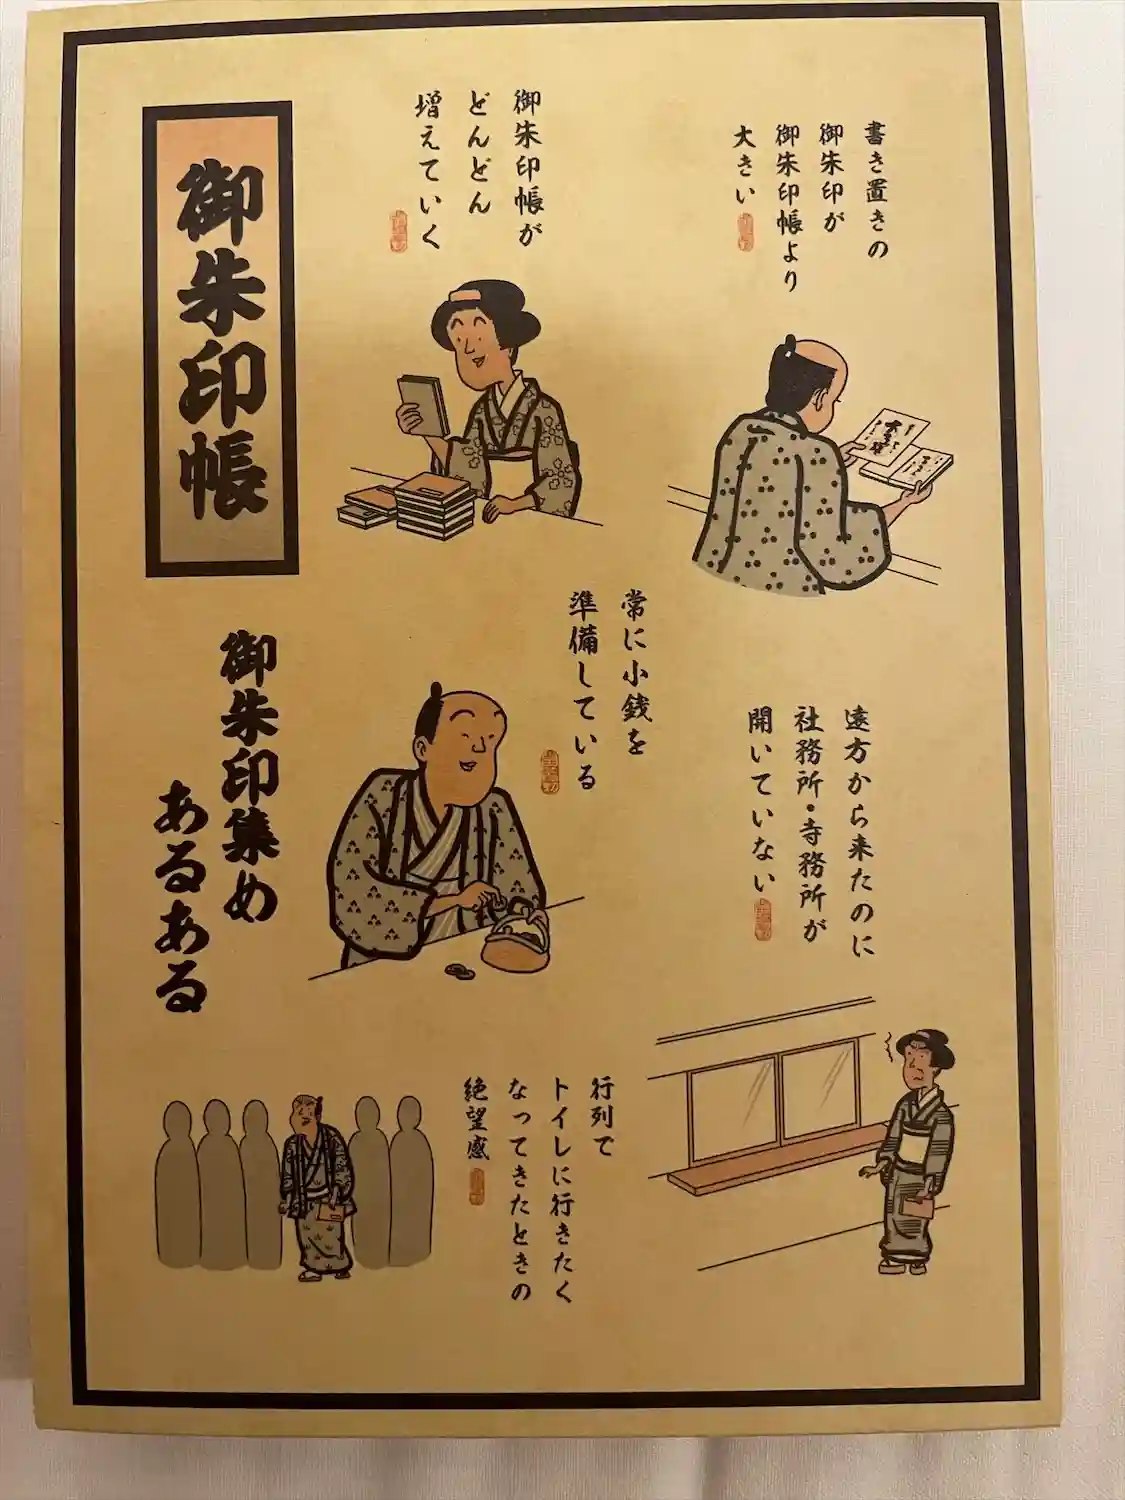 御朱印帳
御朱印集め
あるある
書き置きの
御朱印が
御朱印帳より
大きい
御朱印帳が
どんどん
増えていく
常に小銭を
準備している
遠方から来たのに
社務所・寺務所が
開いていない
行列で
トイレに行きたく
なってきたときの
絶望感